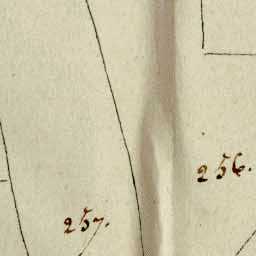 256.
257.